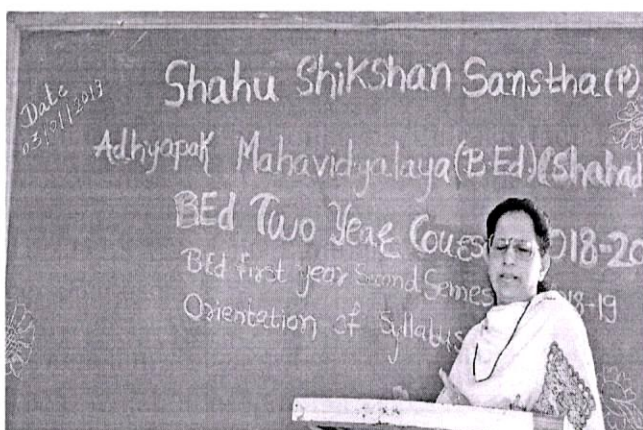 Date
03/01/2019
Shahu Shikshan Sanstha (P)
Adhyapak Mahavidyalaya (B.Ed) (Shahad
BEd Two Year Cours 2018-20
BEd first year Second Semes 2018-19
Orientation of Syllabus